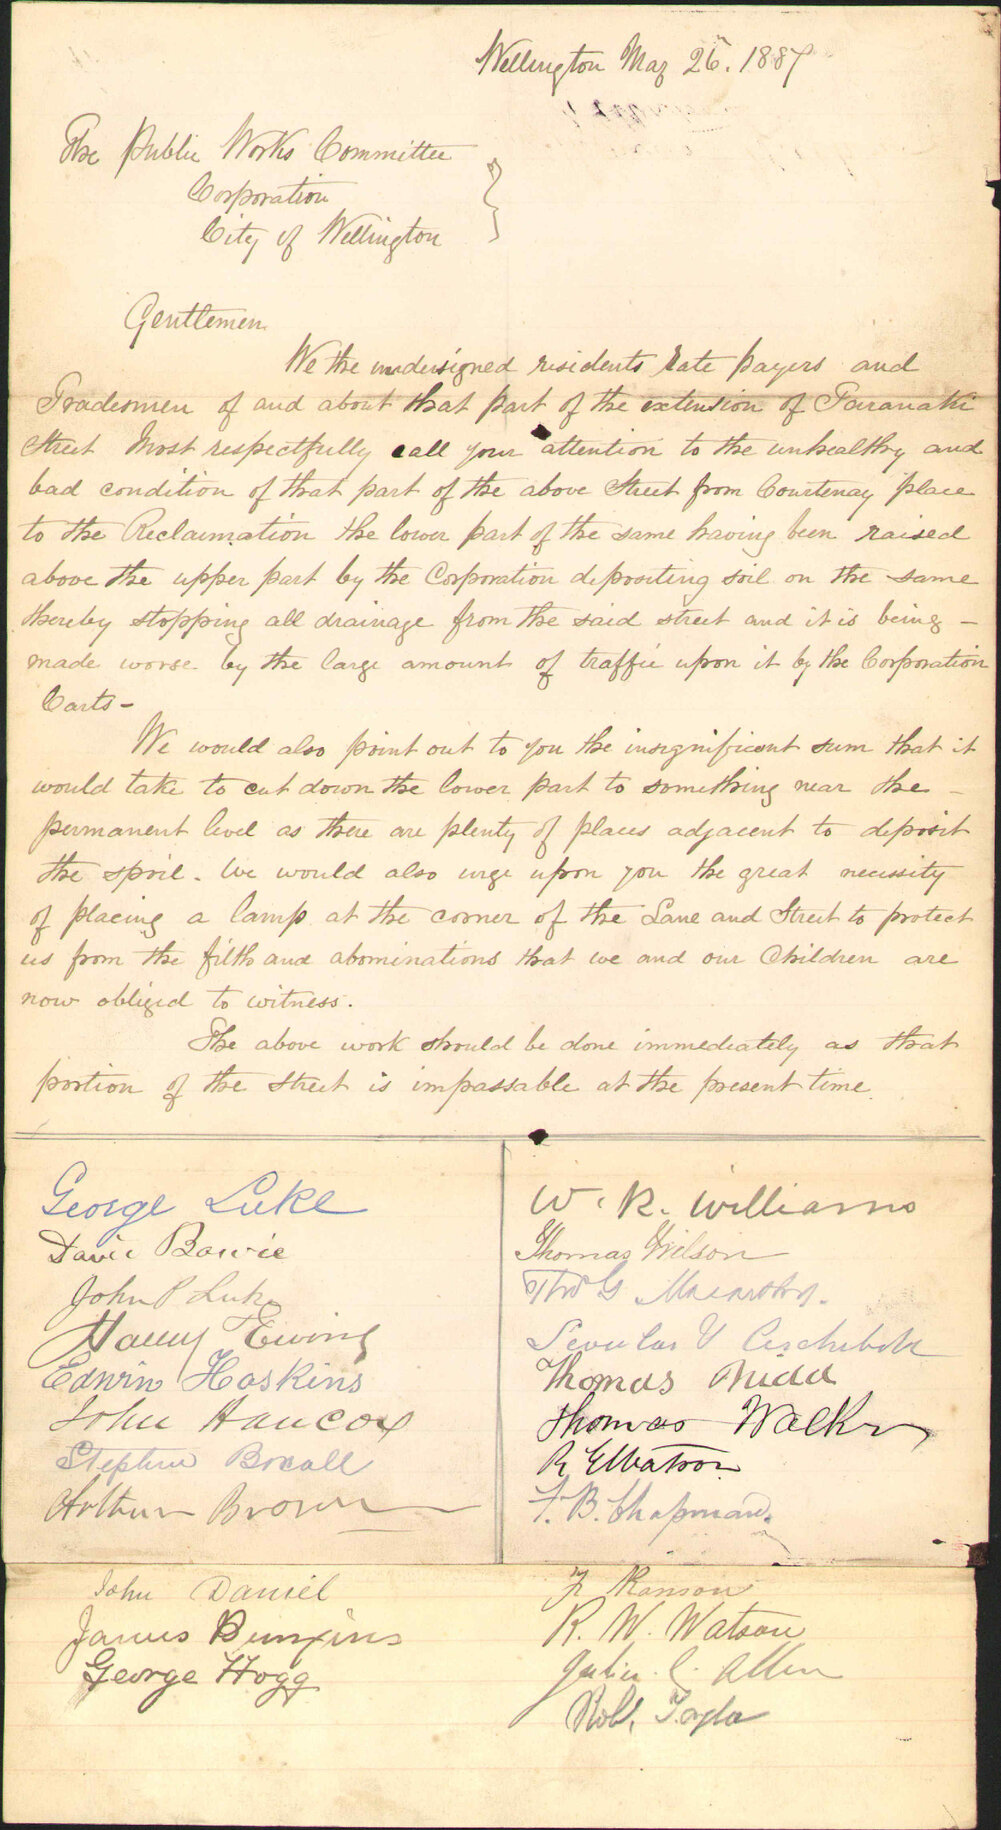 Wellington May 26. 1887
The Public Works Committee
Corporation
City of Wellington
Gentlemen
We the undersigned residents rate payers and
Tradesmen of and about that part of the extension of Taranaki
Street Most respectfully call your attention to the unhealthy and
bad condition of that part of the above Street from Courtenay place
to the Reclaimation the lower part of the same having been raised
above the upper part by the Corporation depositing soil on the same
thereby stopping all drainage from the said street and it is being -
made worse by the large amount of traffic upon it by the Corporation
Carts -
We would also point out to you the insignificant sum that it
would take to cut down the lower part to something near the -
permanent level as there are plenty of places adjacent to deposit
the spoil. We would also urge upon you the great necessity
of placing a lamp at the corner of the Lane and Street to protect
us from the filth and abominations that we and our Children are
now obliged to witness.
The above work should be done immediately as that
portion of the Street is impassable at the present time.
George Luke
David Bowie
John P Luke
Harry Ewing
Edwin Hoskins
John Hancox
Stephen Boxall
Arthur Brown
John Daniel
James
George Hogg
W. R. Williams
Thomas Wilson
Thos G
Thomas
Thomas Walker
R E Watson
F. B. Chapman.
F Ranson
R. W. Watson
C. Allen
Robt. Taylor